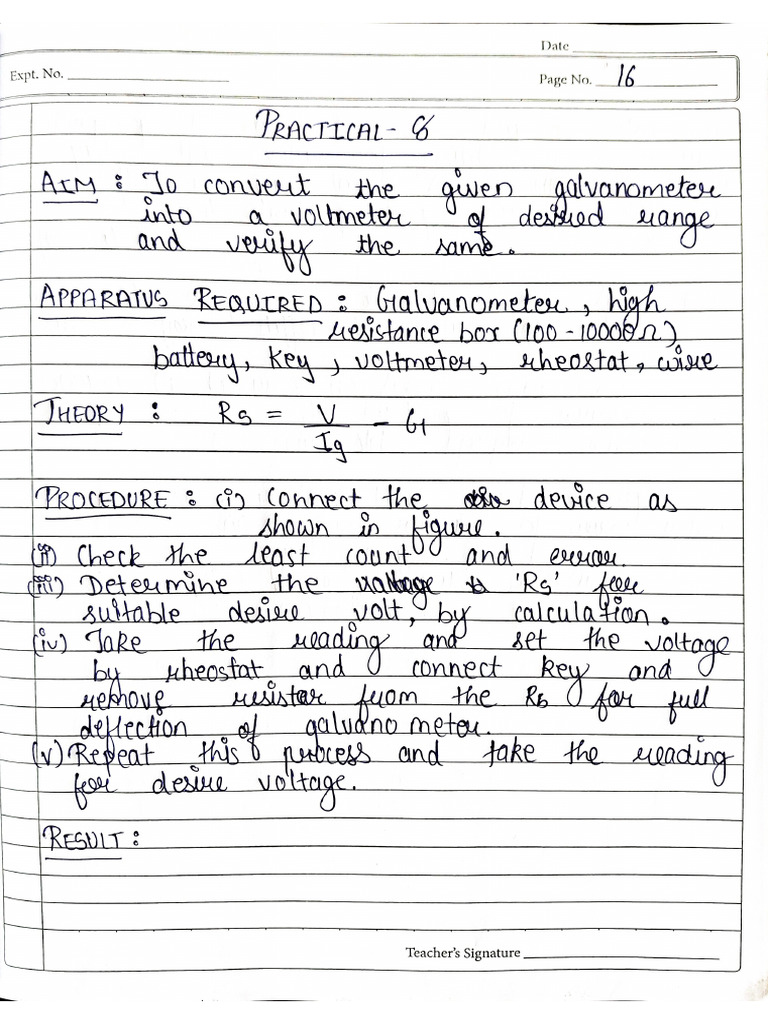 Date
Expt. No.
Page No. 16
PRACTICAL - 8
AIM : To convert the given galvanometer
into a voltmeter of desired range
and verify the same.
APPARATUS REQUIRED : Galvanometer, high
resistance box (100 - 10000 Ω)
battery, key, voltmeter, rheostat, wire
THEORY : Rs = V/Ig - G
PROCEDURE : (i) Connect the device as
shown in figure.
(ii) Check the least count and error.
(iii) Determine the 'Rs' for
suitable desire volt, by calculation.
(iv) Take the reading and set the voltage
by rheostat and connect key and
remove resistar from the Rb for full
deflection of galvanometer.
(v) Repeat this process and take the reading
for desire voltage.
RESULT :
Teacher's Signature